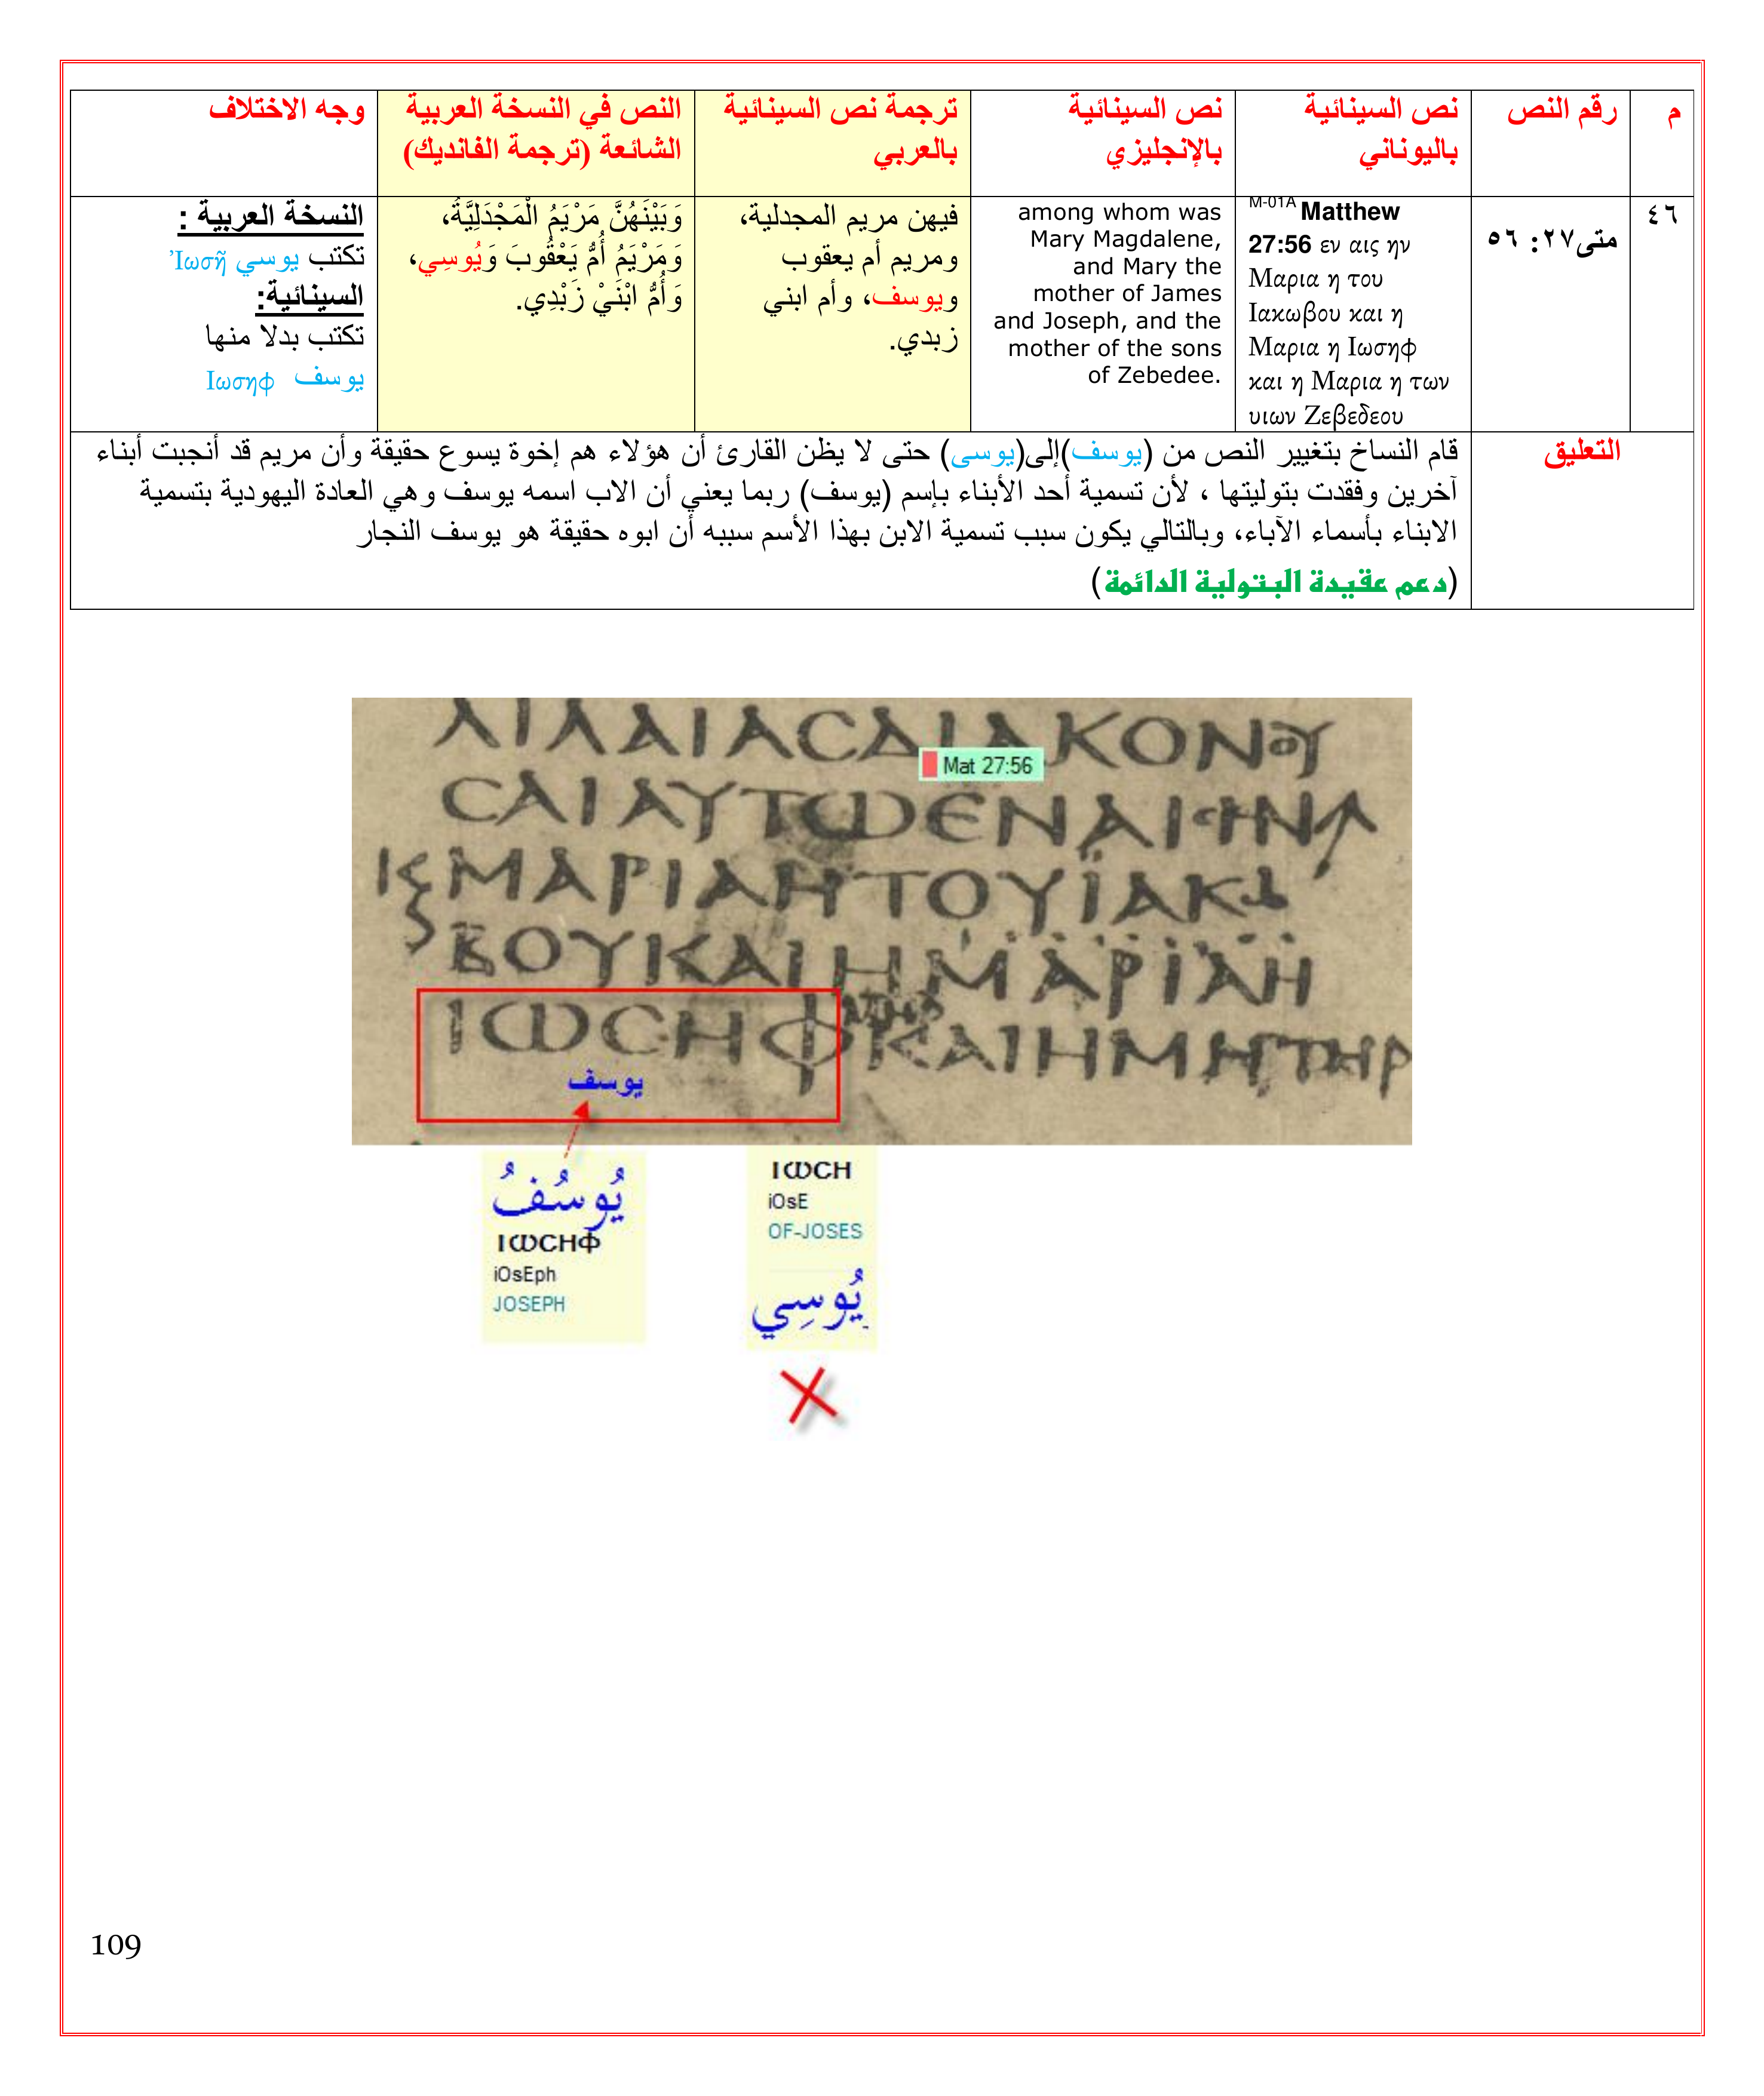 م
رقم النص
نص السينائية
باليوناني
نص السينائية
بالإنجليزي
ترجمة نص السينائية
بالعربي
النص في النسخة العربية
الشائعة (ترجمة الفانديك)
وجه الاختلاف
٤٦
متى٢٧: ٥٦
M-01A Matthew
27:56 εν αις ην
Μαρια η του
Ιακωβου και η
Μαρια η Ιωσηφ
και η Μαρια η των
υιων Ζεβεδεου
among whom was
Mary Magdalene,
and Mary the
mother of James
and Joseph, and the
mother of the sons
of Zebedee.
فيهن مريم المجدلية،
ومريم أم يعقوب
ويوسف، وأم ابني
زبدي.
وَبَيْنَهُنَّ مَرْيَمُ الْمَجْدَلِيَّةُ،
وَمَرْيَمُ أُمُّ يَعْقُوبَ وَيُوسِي،
وَأُمُّ ابْنَيْ زَبْدِي.
النسخة العربية :
تكتب يوسي Ἰωσῆ
السينائية:
تكتب بدلا منها
يوسف Ιωσηφ
التعليق
قام النساخ بتغيير النص من (يوسف)إلى(يوسى) حتى لا يظن القارئ أن هؤلاء هم إخوة يسوع حقيقة وأن مريم قد أنجبت أبناء
آخرين وفقدت بتوليتها ، لأن تسمية أحد الأبناء بإسم (يوسف) ربما يعني أن الاب اسمه يوسف وهي العادة اليهودية بتسمية
الابناء بأسماء الآباء، وبالتالي يكون سبب تسمية الابن بهذا الأسم سببه أن ابوه حقيقة هو يوسف النجار
(دعم عقيدة البتولية الدائمة)
ΛΙΛΑΙΑϹΔΙΑΚΟΝΟΥ
Mat 27:56
ϹΑΙΑΥΤΩΕΝΑΙϹΗΝ
ΜΑΡΙΑΗΤΟΥΪΑΚΩ
ΒΟΥΚΑΙΗΜΑΡΙΑΗ
ΙΩϹΗΦΚΑΙΗΜΗΤΗΡ
يوسف
يُوسُفُ
ΙΩϹΗΦ
iOsEph
JOSEPH
ΙΩϹΗ
iOsE
OF-JOSES
يُوسِي
109